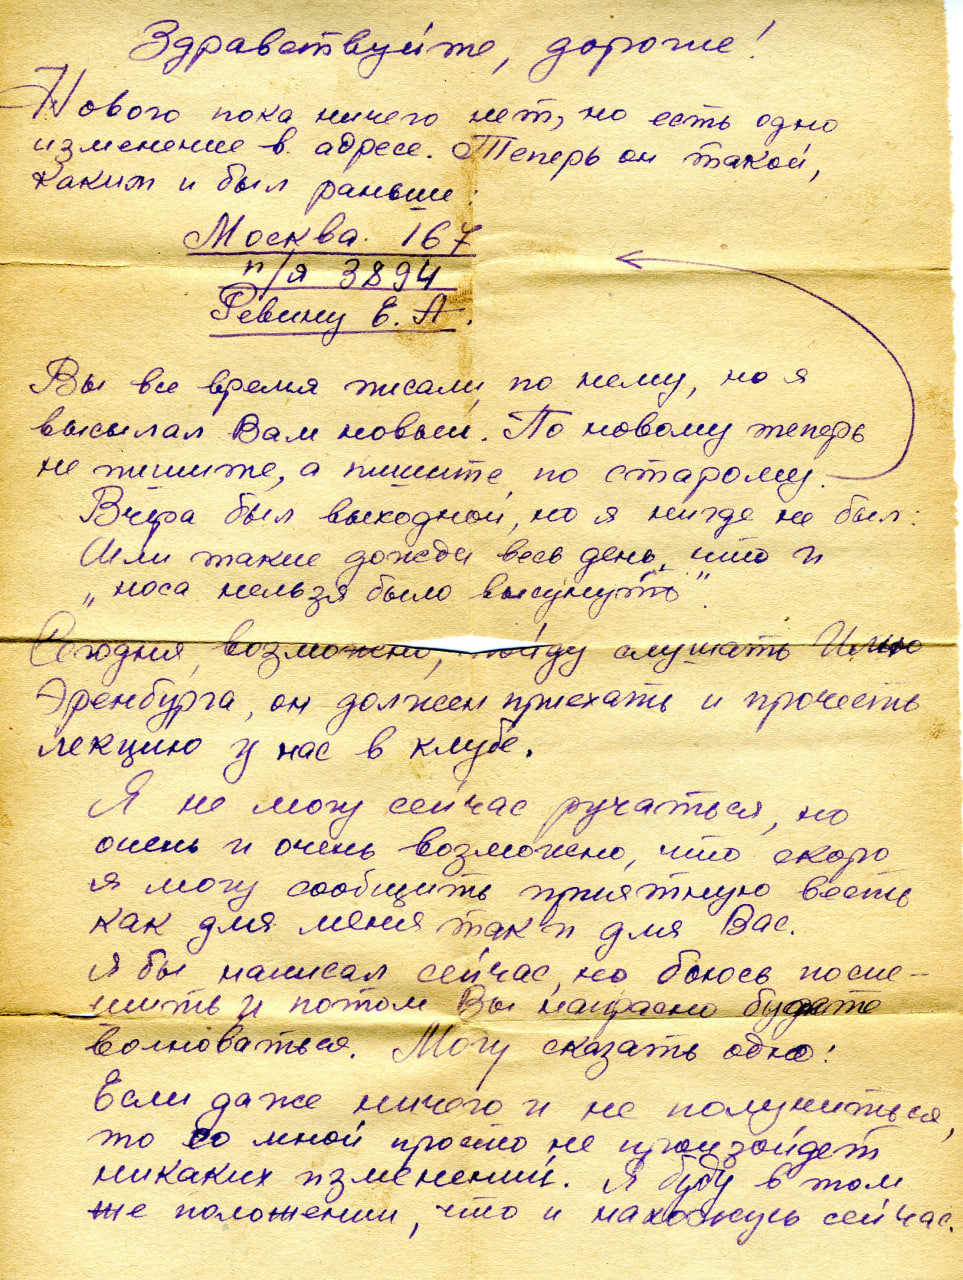 Здравствуйте, дорогие!
Нового пока ничего нет, но есть одно
изменение в адресе. Теперь он такой,
каким и был раньше:
Москва 167
п/я 3894
Ревину Е. А.
Вы все время писали по нему, но я
высылал Вам новый. По новому теперь
не пишите, а пишите по старому.
Вчера был выходной, но я нигде не был:
Шли такие дожди весь день, что и
„носа нельзя было высунуть".
Сегодня, возможно, пойду слушать Илью
Эренбурга, он должен приехать и прочесть
лекцию у нас в клубе.
Я не могу сейчас ручаться, но
очень и очень возможно, что скоро
я могу сообщить приятную весть
как для меня так и для Вас.
Я бы написал сейчас, но боюсь поспе-
шить и потом Вы напрасно будете
волноваться. Могу сказать одно:
Если даже ничего и не получиться,
то со мной просто не произойдет
никаких изменений. Я буду в том
же положении, что и нахожусь сейчас.